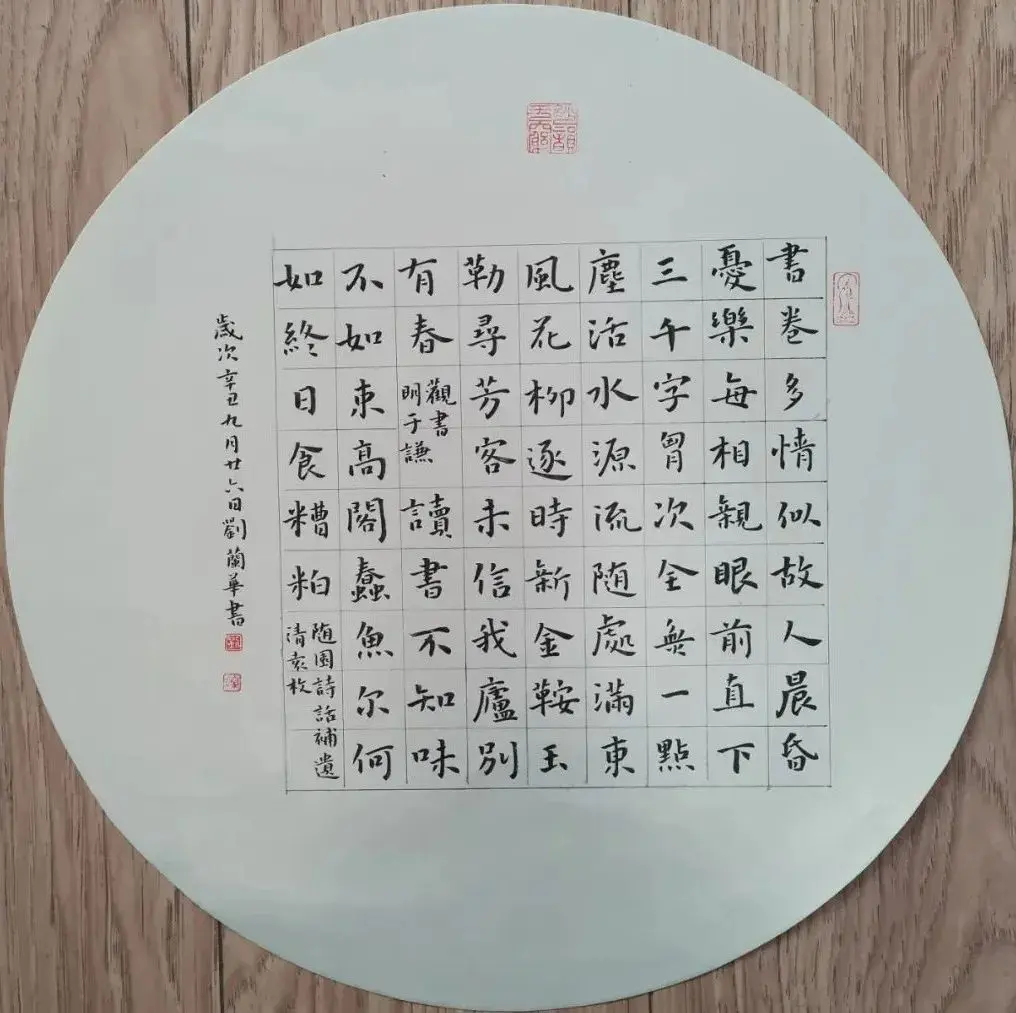 書卷多情似故人晨昏
憂樂每相親眼前直下
三千字胷次全無一點
塵活水源流随處滿東
風花柳逐時新金鞍玉
勒尋芳客未信我廬別
有春
觀書
明于謙
讀書不知味
不如束高閣蠹魚尔何
如終日食糟粕
随園詩話補遺
清袁枚
歲次辛丑九月廿六日劉蘭華書